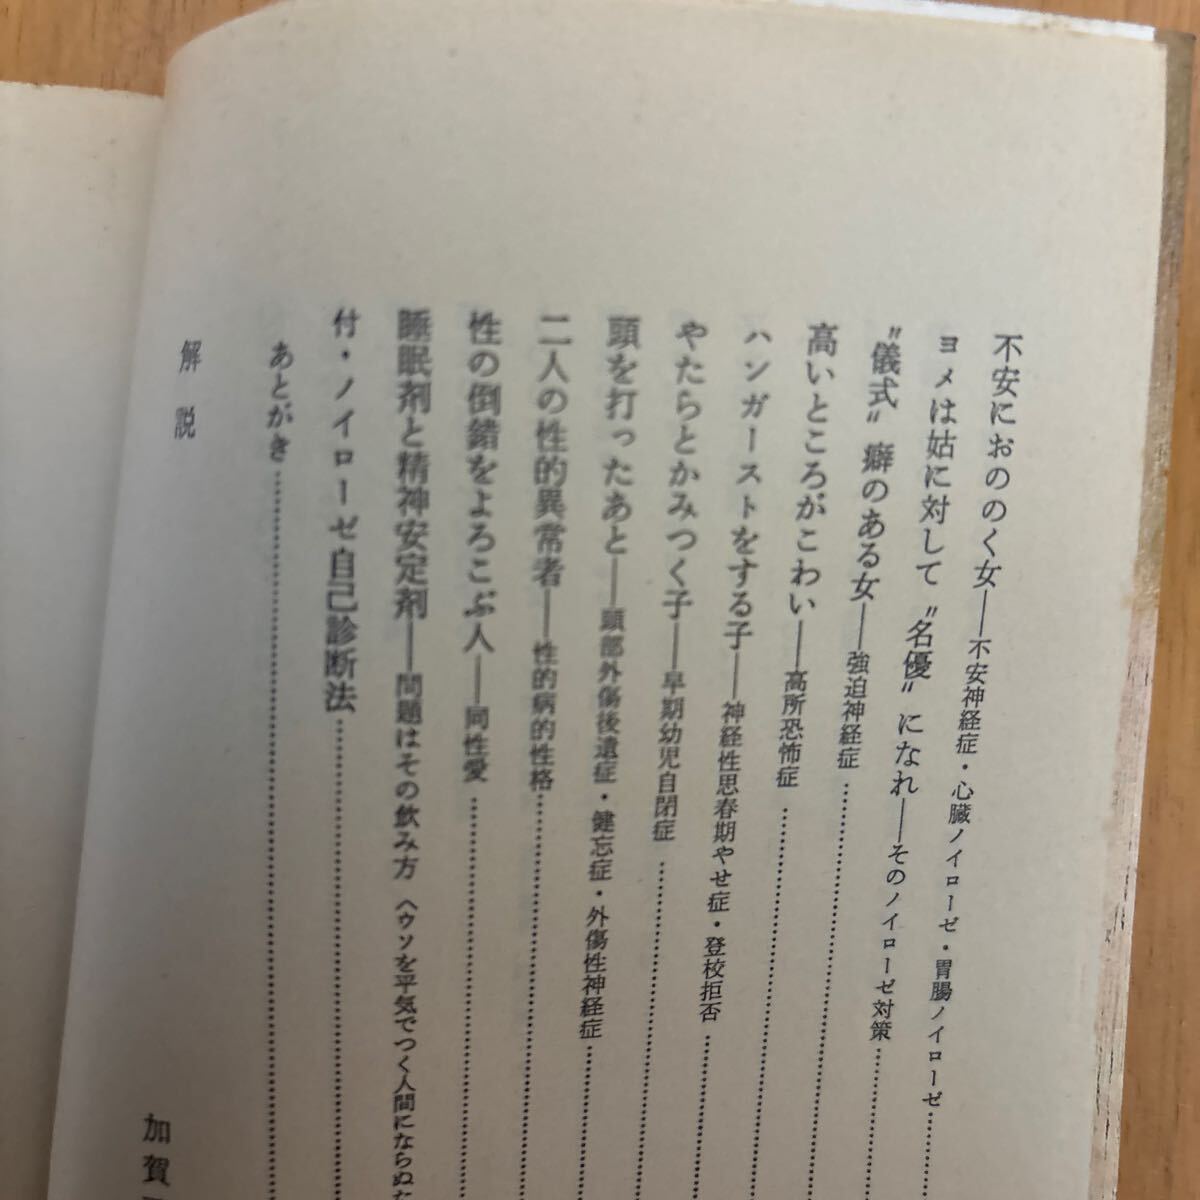 不安におののく女――不安神経症・心臓ノイローゼ・胃腸ノイローゼ
ヨメは姑に対して〝名優〟になれ――そのノイローゼ対策
〝儀式〟癖のある女――強迫神経症
高いところがこわい――高所恐怖症
ハンガーストをする子――神経性思春期やせ症・登校拒否
やたらとかみつく子――早期幼児自閉症
頭を打ったあと――頭部外傷後遺症・健忘症・外傷性神経症
二人の性的異常者――性的病的性格
性の倒錯をよろこぶ人――同性愛
睡眠剤と精神安定剤――問題はその飲み方〈ウソを平気でつく人間にならぬた
付・ノイローゼ自己診断法
あとがき
解説 加賀